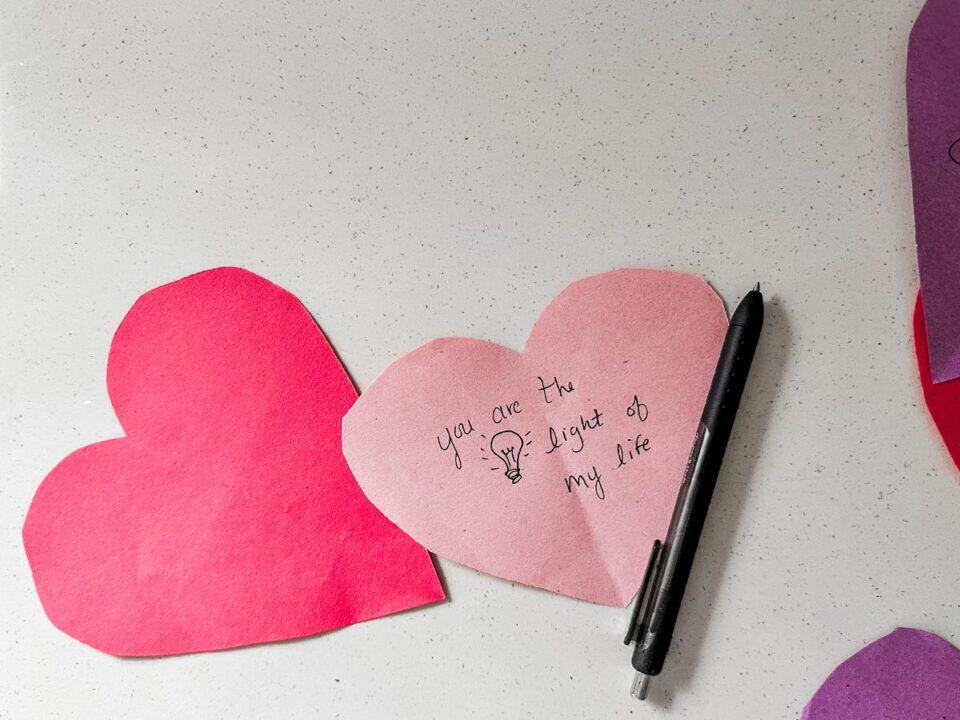 you are the
light of
my life